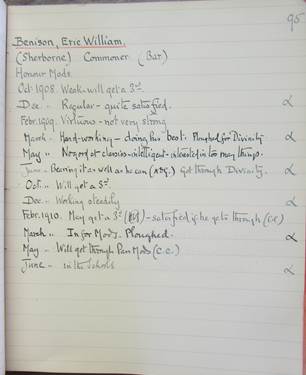 95
Benison, Eric William,
(Sherborne) Commoner (Bar)
Honour Mods.
Oct: 1908. Weak - will get a 3rd.
Dec. " Regular - quite satisfied.
Febr. 1909. Virtuous - not very strong α
March " Hard-working - doing his best. Ploughed for Divinity
May " No good at classics - intelligent - interested in too many things. α
June " Bearing it as well as he can (A.D.G.) Got through Divinity. α
Oct. " Will get a 3rd.
Dec. " Working steadily α
Febr. 1910. May get a 3rd - satisfied if he gets through (C.C.) α
March " In for Mods. Ploughed. α
May " Will get through Pass Mods (C.C.) α
June - in the Schools α